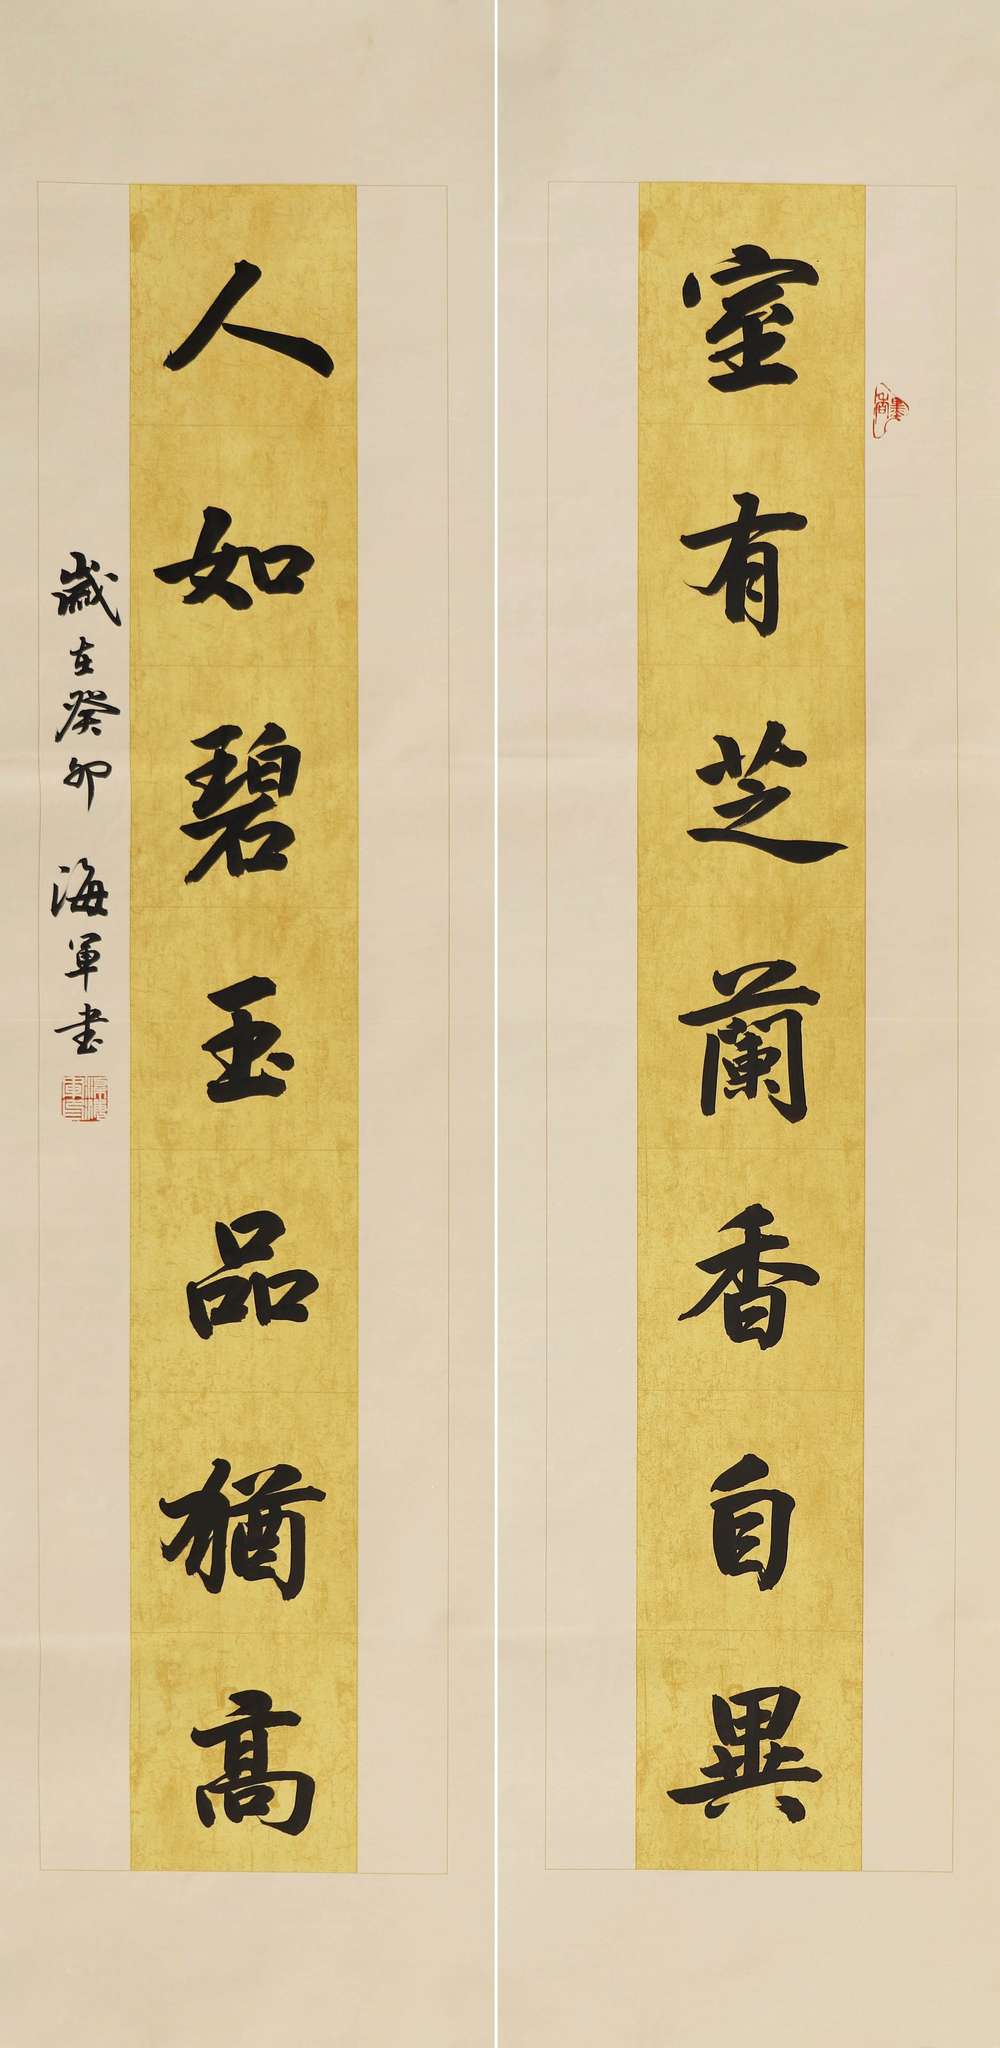 室有芝蘭香自異
人如碧玉品猶高
歲在癸卯 海軍书